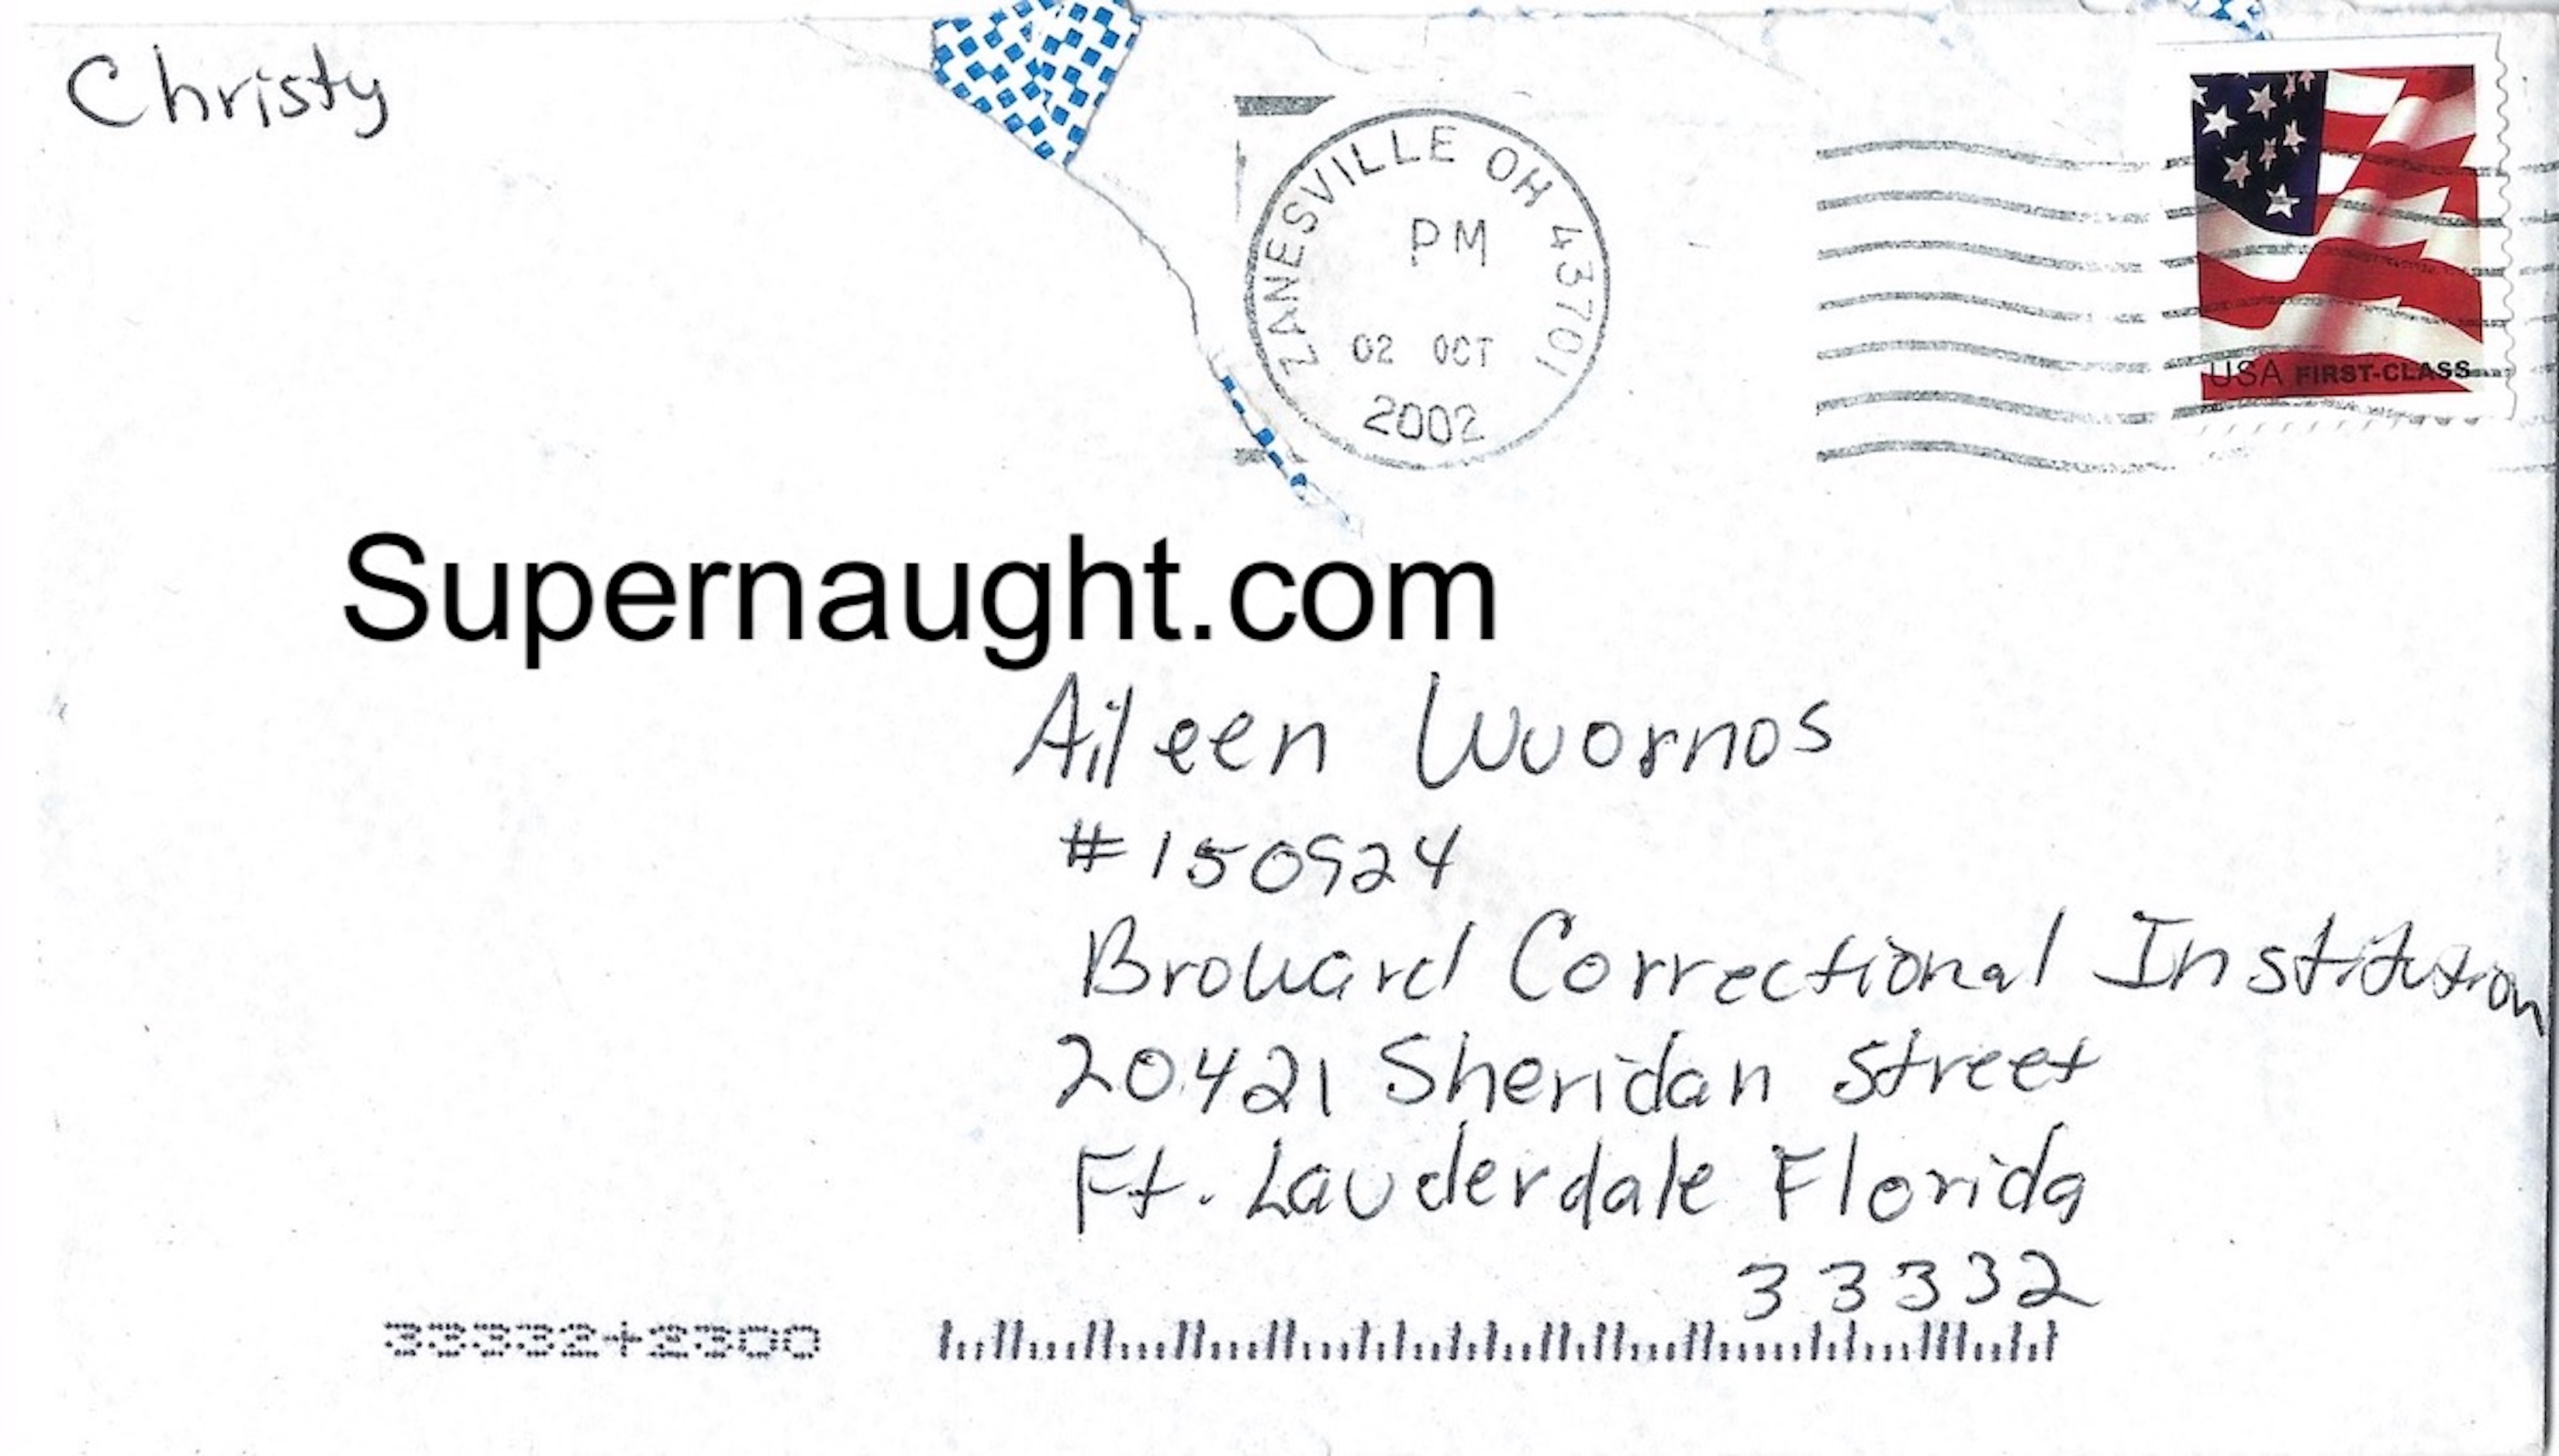 Christy
ZANESVILLE OH 43701
PM
02 OCT
2002
USA FIRST-CLASS
Supernaught.com
Aileen Wuornos
#150924
Broward Correctional Institution
20421 Sheridan Street
Ft. Lauderdale Florida
33332
33332+2300